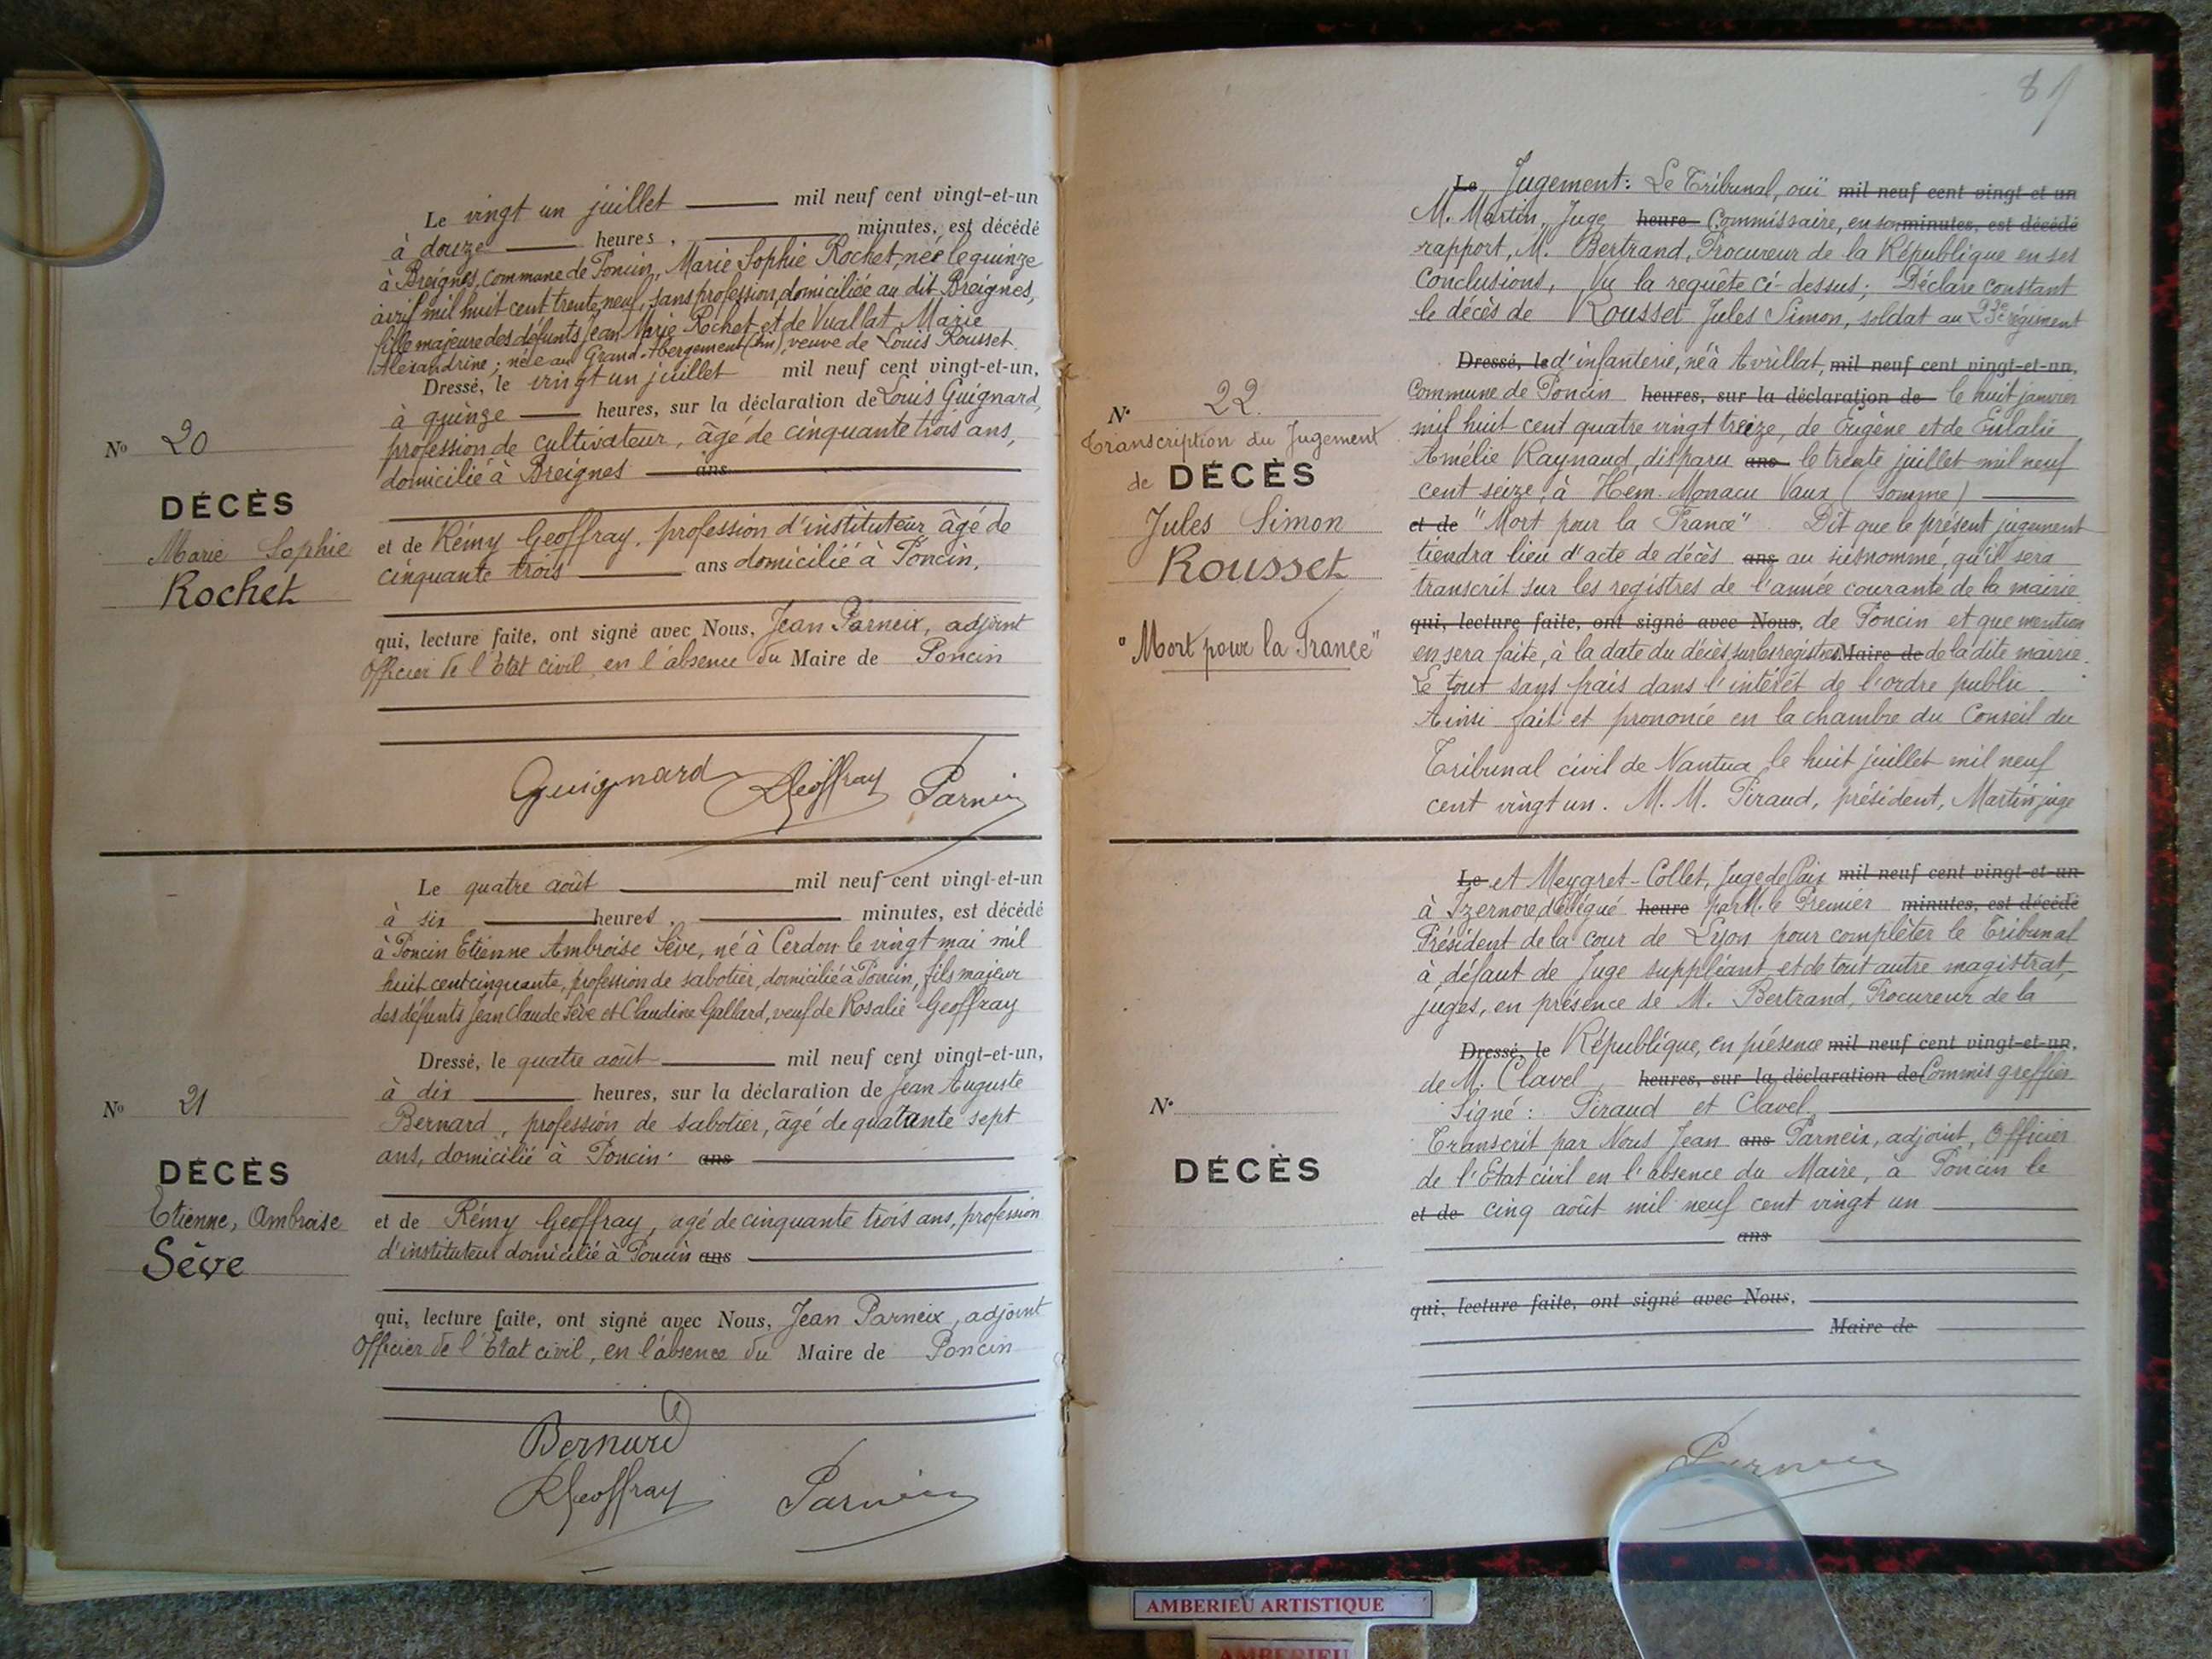 Le vingt un juillet mil neuf cent vingt-et-un
à douze heures, minutes, est décédé
à Breignes, commune de Poncin, Marie Sophie Rochet, née le quinze
avril mil huit cent trente neuf, sans profession, domiciliée au dit Breignes,
fille majeure des défunts Jean Marie Rochet et de Vuallat Marie
Alexandrine ; née au Grand-Abergement (Ain), veuve de Louis Rousset.
Dressé, le vingt un juillet mil neuf cent vingt-et-un,
à quinze heures, sur la déclaration de Louis Guignard,
profession de cultivateur, âgé de cinquante trois ans,
domicilié à Breignes ans
No 20
DÉCÈS
Marie Sophie
Rochet
et de Rémy Geoffray, profession d'instituteur âgé de
cinquante trois ans domicilié à Poncin,
qui, lecture faite, ont signé avec Nous, Jean Parneix, adjoint
Officier de l'Etat civil, en l'absence du Maire de Poncin
Guignard RGeoffray Parneix
Le quatre août mil neuf cent vingt-et-un
à six heures, minutes, est décédé
à Poncin Etienne Ambroise Sève, né à Cerdon le vingt mai mil
huit cent cinquante, profession de sabotier, domicilié à Poncin, fils majeur
des défunts Jean Claude Sève et Claudine Gallard, veuf de Rosalie Geoffray
Dressé, le quatre août mil neuf cent vingt-et-un,
à dix heures, sur la déclaration de Jean Auguste
Bernard, profession de sabotier, âgé de quatante sept
ans, domicilié à Poncin. ans
No 21
DÉCÈS
Etienne, Ambroise
Sève
et de Rémy Geoffray, agé de cinquante trois ans, profession
d'instituteur domicilié à Poncin ans
qui, lecture faite, ont signé avec Nous, Jean Parneix, adjoint
Officier de l'Etat civil, en l'absence du Maire de Poncin
Bernard
RGeoffray Parneix
Le Jugement : Le Tribunal, ouï mil neuf cent vingt-et-un
M. Martin, Juge heure Commissaire, en son minutes, est décédé
rapport, M. Bertrand, Procureur de la République en ses
conclusions, Vu la requête ci-dessus ; Déclare constant
le décès de Rousset Jules Simon, soldat au 23e régiment
Dressé, le d'infanterie, né à Avrillat, mil neuf cent vingt-et-un,
commune de Poncin heures, sur la déclaration de le huit janvier
mil huit cent quatre vingt treize, de Eugène et de Eulalie
Amélie Raynaud, disparu ans le trente juillet mil neuf
cent seize, à Hem. Monacu Vaux (Somme)
et de "Mort pour la France". Dit que le présent jugement
tiendra lieu d'acte de décès ans au susnommé, qu'il sera
transcrit sur les registres de l'année courante de la mairie
qui, lecture faite, ont signé avec Nous, de Poncin et que mention
en sera faite, à la date du décès, sur les registres Maire de de la dite mairie.
Le tout sans frais dans l'intérêt de l'ordre public.
Ainsi fait et prononcé en la chambre du Conseil du
Tribunal civil de Nantua le huit juillet mil neuf
cent vingt un. M. M. Piraud, président, Martin juge
N° 22.
Transcription du Jugement
de DÉCÈS
Jules Simon
Rousset
"Mort pour la France"
Le et Meygret-Collet, Juge de Paix mil neuf cent vingt-et-un
à Izernore délégué heure par M. le Premier minutes, est décédé
Président de la cour de Lyon pour complèter le Tribunal
à défaut de Juge suppléant et de tout autre magistrat,
juges, en présence de M. Bertrand, Procureur de la
Dressé, le République, en présence mil neuf cent vingt-et-un,
de M. Clavel, heures, sur la déclaration de Commis greffier
Signé : Piraud et Clavel,
Transcrit par Nous Jean ans Parneix, adjoint, Officier
de l'Etat civil en l'absence du Maire, à Poncin le
et de cinq août mil neuf cent vingt un
ans
qui, lecture faite, ont signé avec Nous,
Maire de
N°
DÉCÈS
Parneix
AMBERIEU ARTISTIQUE
AMBERIEU